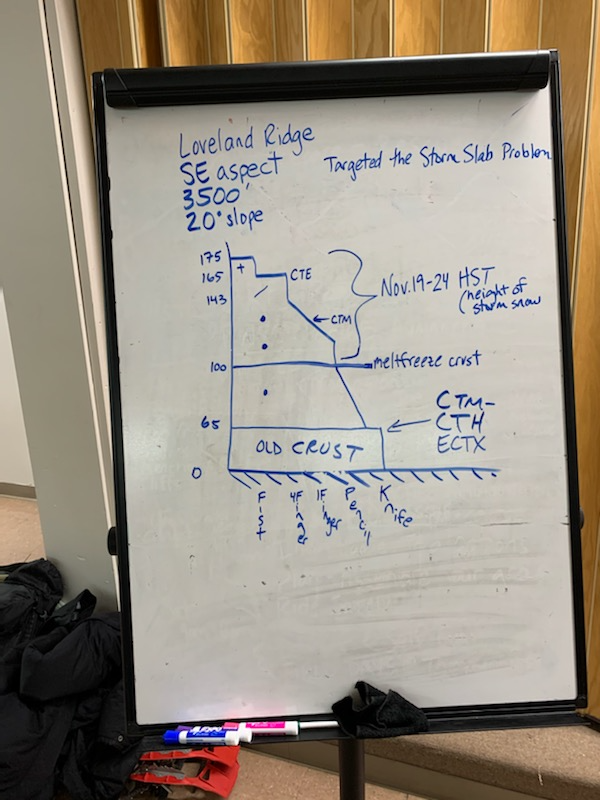 Loveland Ridge
SE aspect
3500'
20° slope
Targeted the Storm Slab Problem
175
+
165
CTE
143
CTM
Nov. 19-24 HST
(height of
storm snow
100
meltfreeze crust
65
OLD CRUST
CTM-
CTH
ECTX
0
Fist
4Finger
1Finger
Pencil
Knife
EXPO